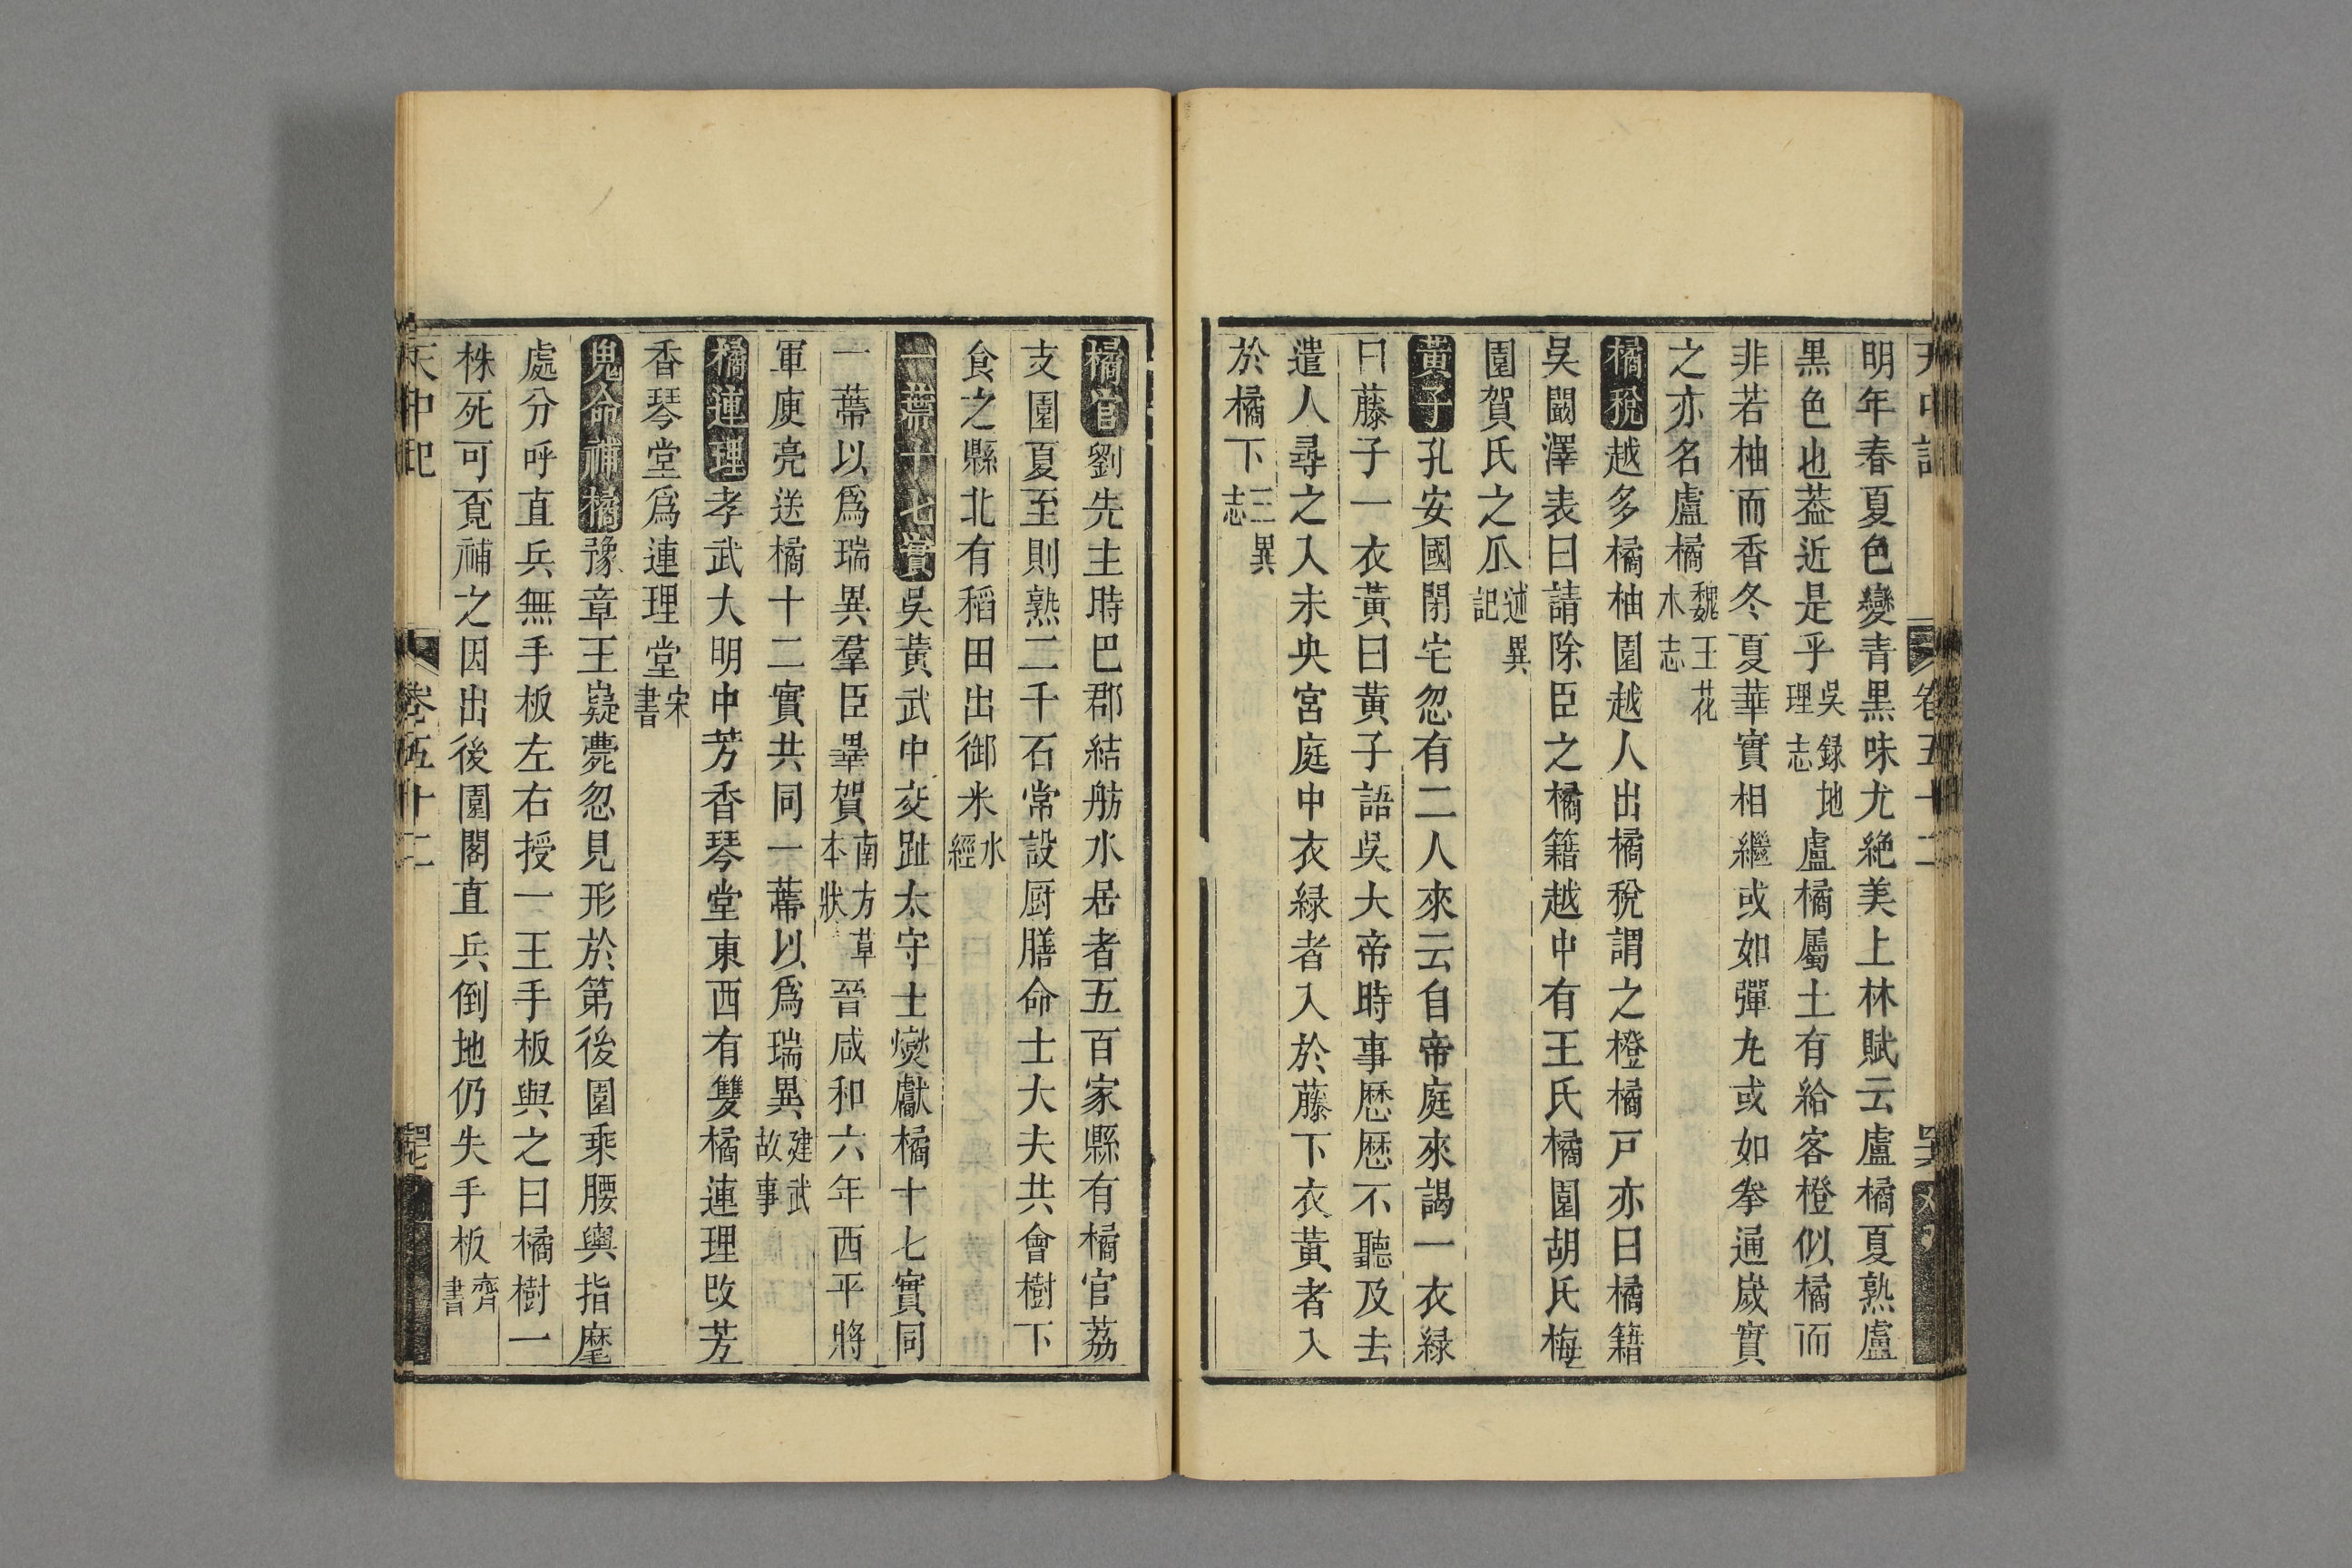 天中記 卷五十二
明年春夏色變青黒味尤絶美上林賦云盧橘夏熟盧
黒色也葢近是乎吳録地理志盧橘屬土有給客橙似橘而
非若柚而香冬夏華實相繼或如彈丸或如拳通嵗實
之亦名盧橘魏王花木志
橘稅越多橘柚園越人出橘稅謂之橙橘戸亦曰橘籍
吳闞澤表曰請除臣之橘籍越中有王氏橘園胡氏梅
園賀氏之瓜述異記
黃子孔安國閉宅忽有二人來云自帝庭來謁一衣緑
曰藤子一衣黃曰黃子語吳大帝時事歷歷不聽及去
遣人尋之入未央宮庭中衣緑者入於藤下衣黃者入
於橘下三異志
橘官劉先主時巴郡結舫水居者五百家縣有橘官荔
支園夏至則熟二千石常設厨膳命士大夫共會樹下
食之縣北有稻田出御米水經
一蔕十七實吳黃武中交趾太守士燮獻橘十七實同
一蔕以爲瑞異羣臣畢賀南方草本狀晉咸和六年西平將
軍庾亮送橘十二實共同一蔕以爲瑞異建武故事
橘連理孝武大明中芳香琴堂東西有雙橘連理改芳
香琴堂爲連理堂宋書
鬼命補橘豫章王嶷薨忽見形於第後園乘腰輿指麾
處分呼直兵無手板左右授一王手板與之曰橘樹一
株死可覔補之因出後園閣直兵倒地仍失手板齊書
天中記 卷五十二